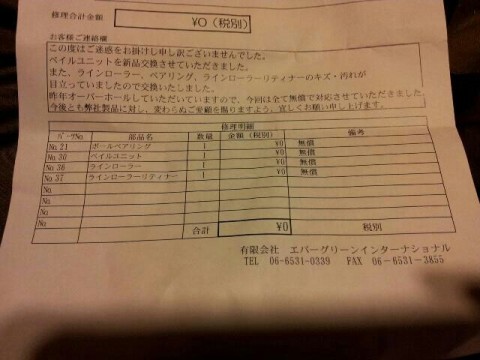 修理合計金額 ¥0(税別)
お客様ご連絡欄
この度はご迷惑をお掛けし申し訳ございませんでした。
ベイルユニットを新品交換させていただきました。
また、ラインローラー、ベアリング、ラインローラーリティナーのキズ・汚れが
目立っていましたので交換いたしました。
昨年オーバーホールしていただいていますので、今回は全て無償で対応させていただきました。
今後とも弊社製品に対し、変わらぬご愛顧を賜りますよう、宜しくお願い申し上げます。
修理明細
パーツNo. 部品名 数量 金額(税別) 備考
No.21 ボールベアリング 1 ¥0 無償
No.30 ベイルユニット 1 ¥0 無償
No.36 ラインローラー 1 ¥0 無償
No.37 ラインローラーリティナー 1 ¥0 無償
No.
No.
No.
No.
合計 ¥0 税別
有限会社 エバーグリーンインターナショナル
TEL 06-6531-0339 FAX 06-6531-3855